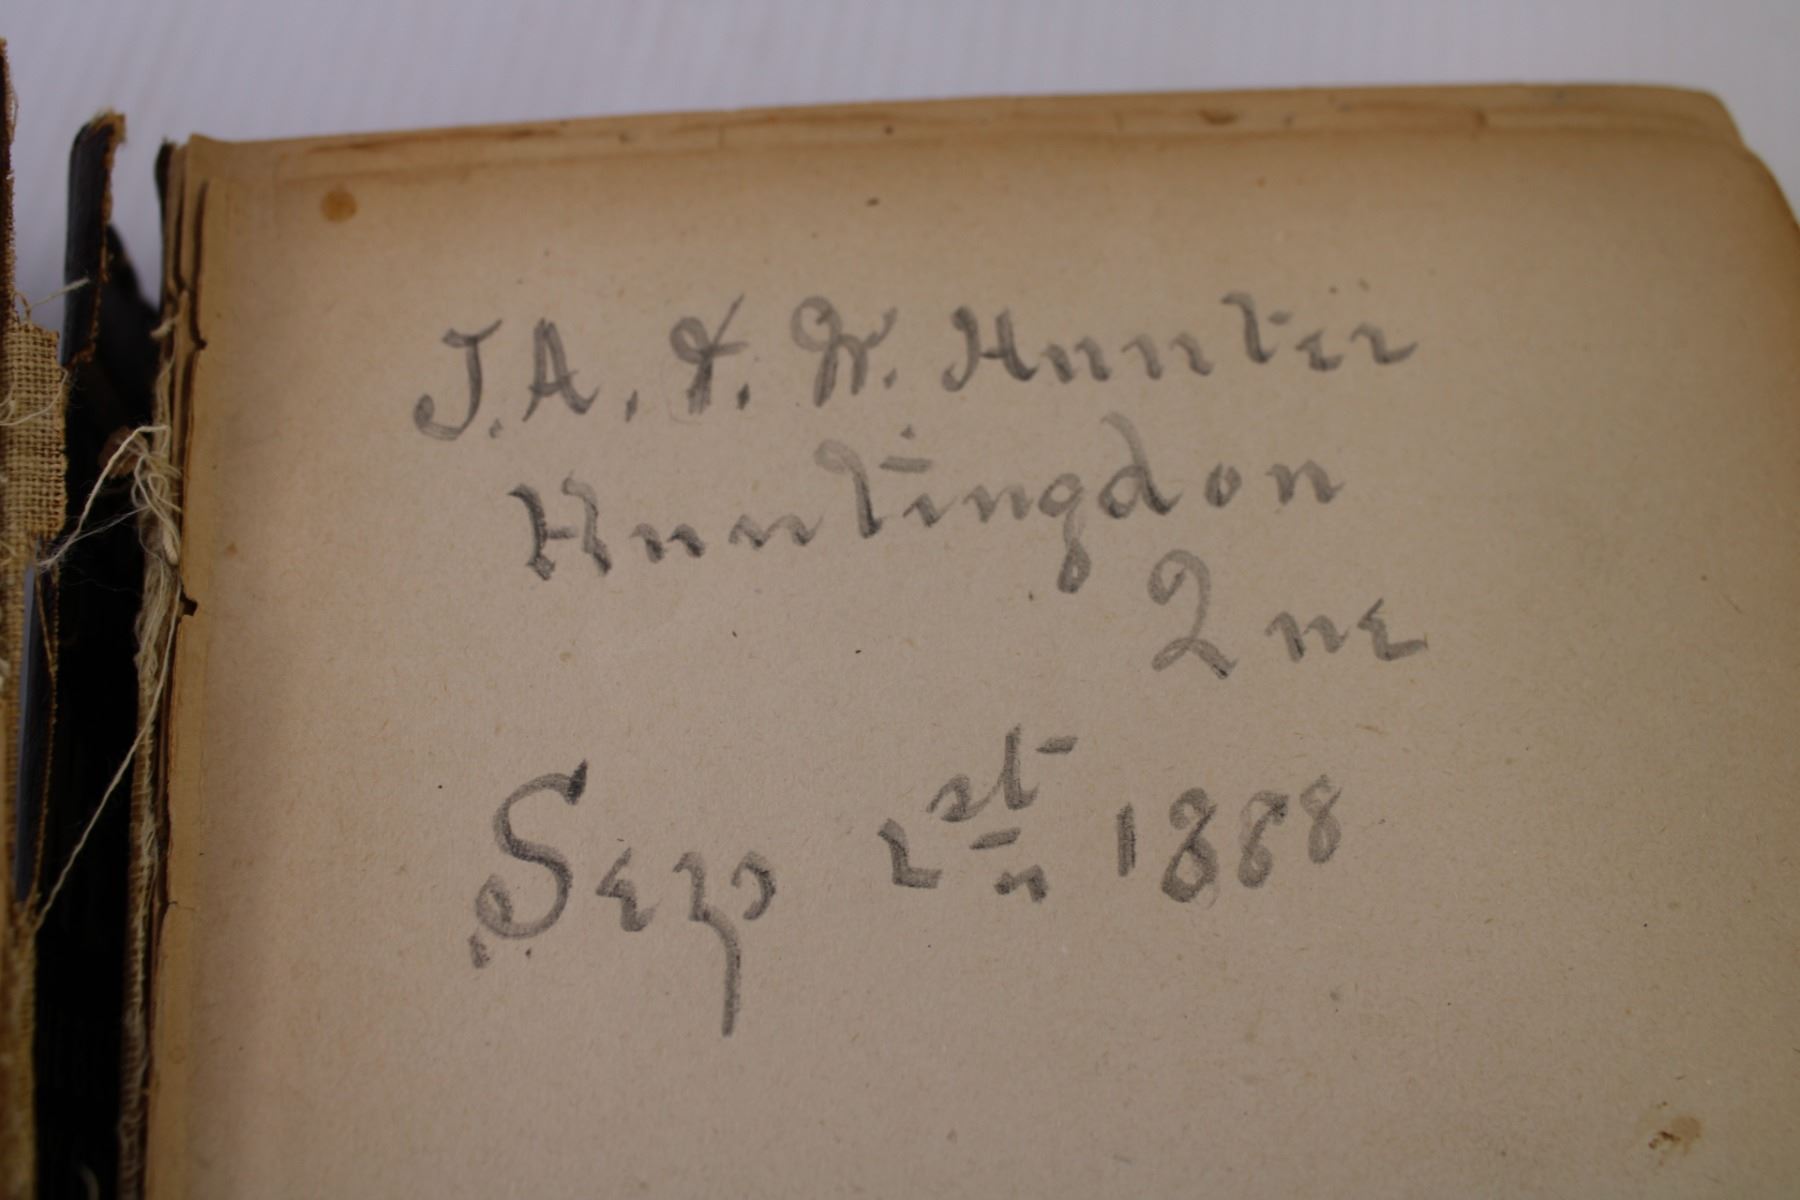 J. A. & W. Hunter
Huntingdon
Que
Sep 1st 1888